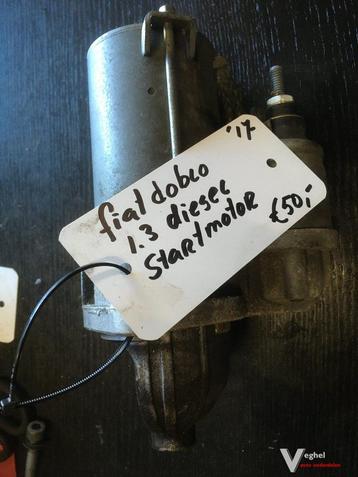 '17
fiat doblo
1.3 diesel
Startmotor
€50,-
Veghel
auto onderdelen